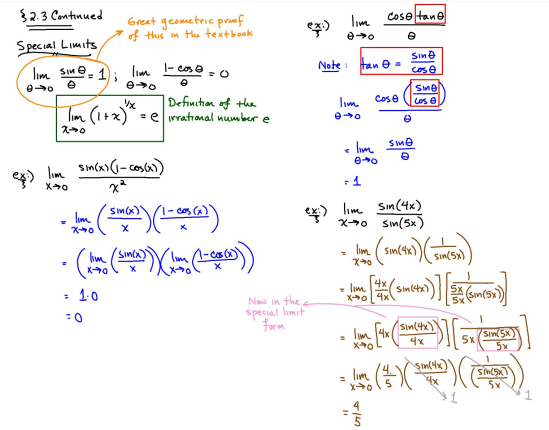 § 2.3 Continued
Great geometric proof
of this in the textbook
Special Limits
lim θ→0 sinθ/θ = 1 ; lim θ→0 (1-cosθ)/θ = 0
lim x→0 (1+x)^(1/x) = e
Definition of the
irrational number e
ex:) lim x→0 sin(x)(1-cos(x))/x²
= lim x→0 (sin(x)/x)((1-cos(x))/x)
= (lim x→0 (sin(x)/x))(lim x→0 ((1-cos(x))/x))
= 1·0
= 0
ex:) lim θ→0 cosθ tanθ/θ
Note: tanθ = sinθ/cosθ
lim θ→0 cosθ(sinθ/cosθ)/θ
= lim θ→0 sinθ/θ
= 1
ex:) lim x→0 sin(4x)/sin(5x)
= lim x→0 (sin(4x))(1/sin(5x))
= lim x→0 [4x/4x (sin(4x))][1/(5x/5x (sin(5x)))]
Now in the
special limit
form
= lim x→0 [4x(sin(4x)/4x)][1/(5x(sin(5x)/5x))]
= lim x→0 (4/5)(sin(4x)/4x)(1/(sin(5x)/5x))
1 1
= 4/5